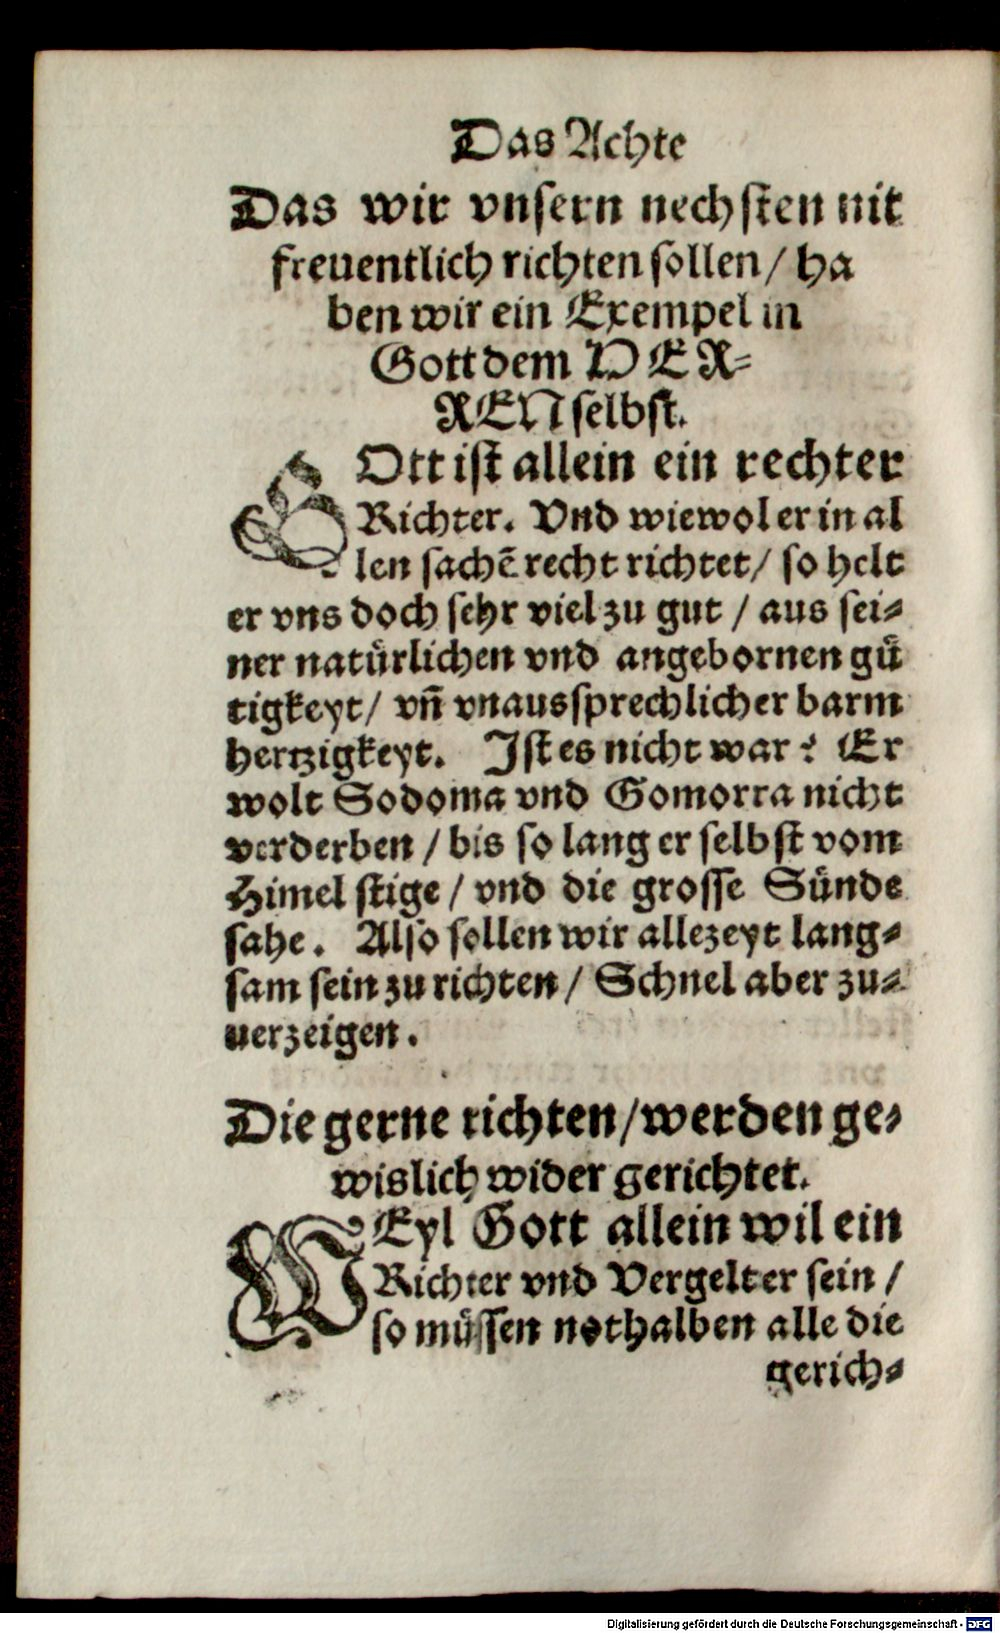 Das Achte
Das wir vnsern nechsten nit
freuentlich richten sollen / ha
ben wir ein Exempel in
Gott dem HER⸗
REN selbst.
GOtt ist allein ein rechter
Richter. Vnd wiewol er in al
len sachẽ recht richtet / so helt
er vns doch sehr viel zu gut / aus sei⸗
ner natuͤrlichen vnd angebornen guͤ
tigkeyt / vñ vnaussprechlicher barm
hertzigkeyt. Ist es nicht war? Er
wolt Sodoma vnd Gomorra nicht
verderben / bis so lang er selbst vom
Himel stige / vnd die grosse Suͤnde
sahe. Also sollen wir allezeyt lang⸗
sam sein zu richten / Schnel aber zu⸗
uerzeigen.
Die gerne richten / werden ge⸗
wislich wider gerichtet.
WEyl Gott allein wil ein
Richter vnd Vergelter sein /
so muͤssen nothalben alle die
gerich⸗
Digitalisierung gefördert durch die Deutsche Forschungsgemeinschaft - DFG